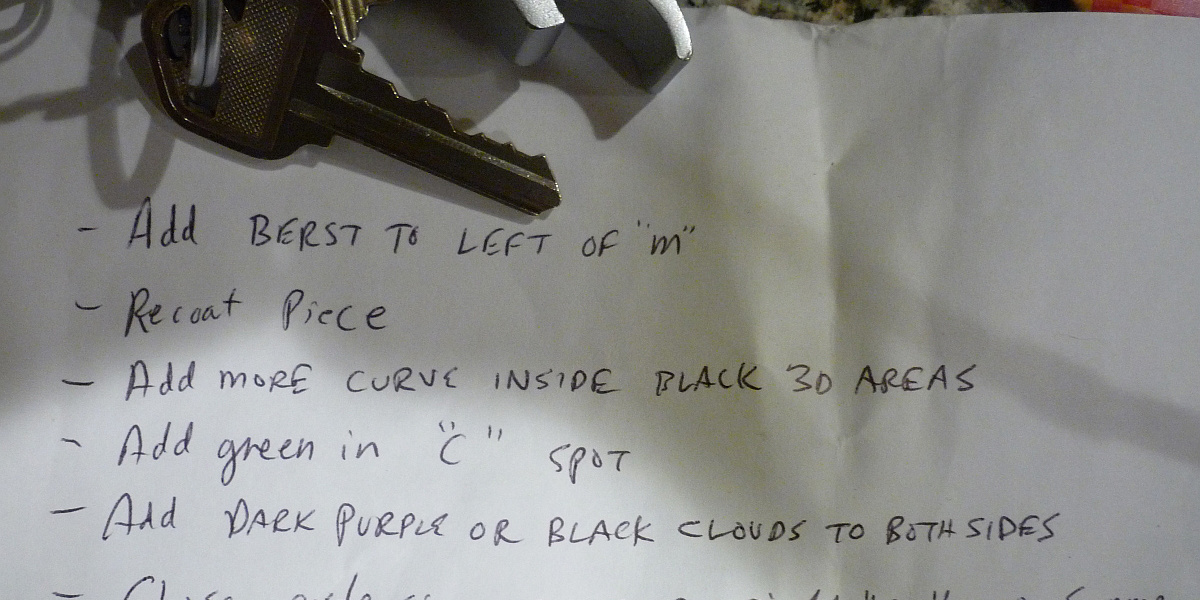 - Add BERST TO LEFT OF "m"
- Recoat Piece
- Add MORE CURVE INSIDE BLACK 3D AREAS
- Add green in "C" SPOT
- Add DARK PURPLE OR BLACK CLOUDS TO BOTH SIDES